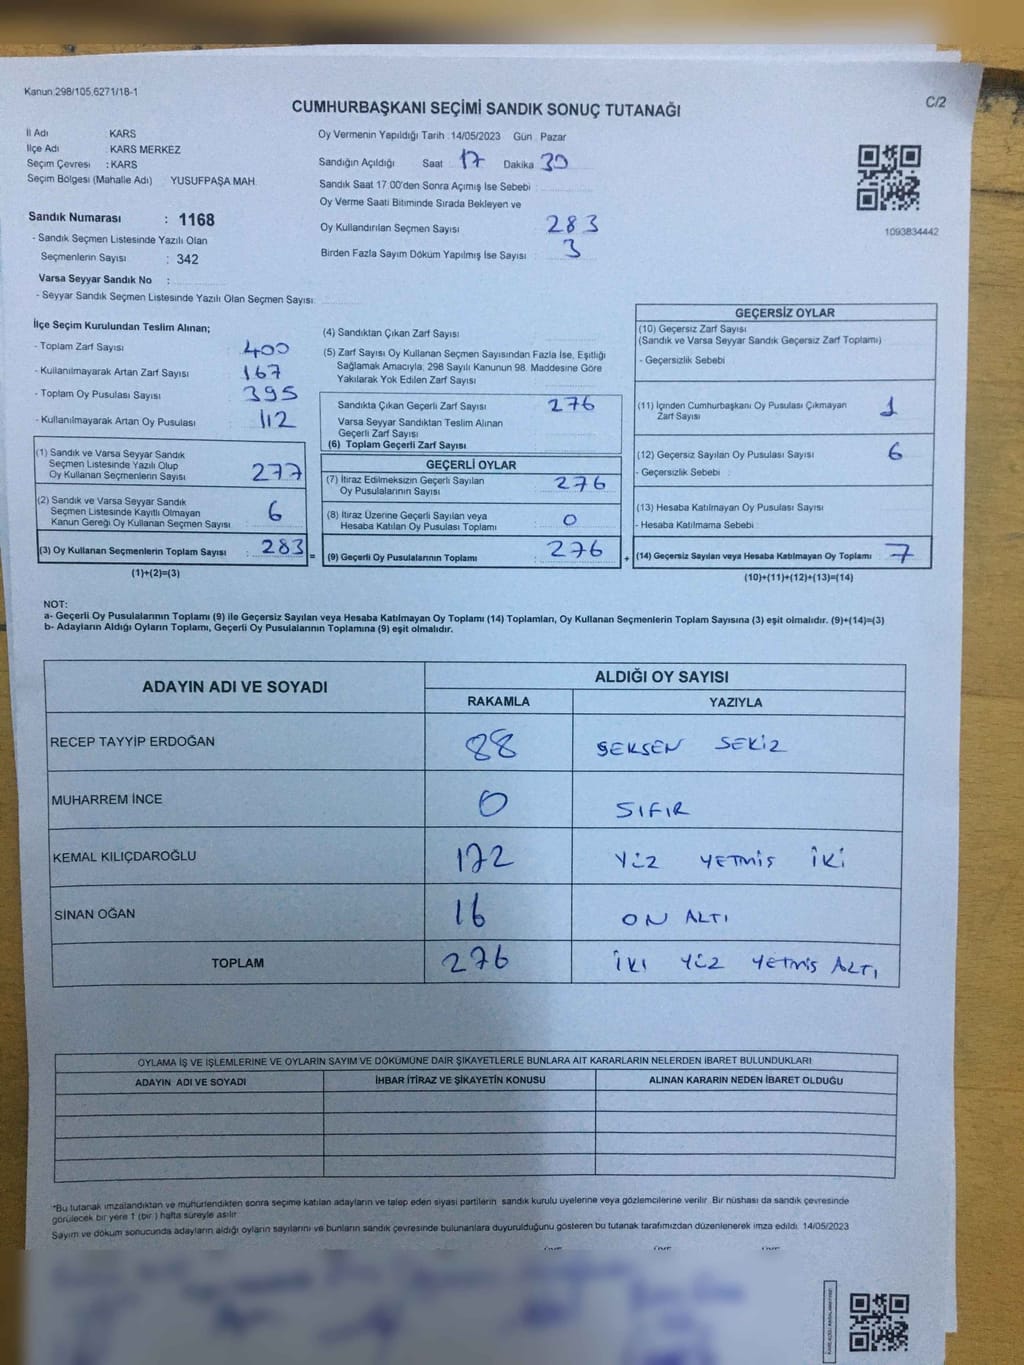 Kanun 298/105,6271/18-1
C/2
CUMHURBAŞKANI SEÇİMİ SANDIK SONUÇ TUTANAĞI
İl Adı : KARS
İlçe Adı : KARS MERKEZ
Seçim Çevresi : KARS
Seçim Bölgesi (Mahalle Adı) YUSUFPAŞA MAH.
Sandık Numarası : 1168
- Sandık Seçmen Listesinde Yazılı Olan
Seçmenlerin Sayısı : 342
Varsa Seyyar Sandık No :
- Seyyar Sandık Seçmen Listesinde Yazılı Olan Seçmen Sayısı:
Oy Vermenin Yapıldığı Tarih : 14/05/2023 Gün : Pazar
Sandığın Açıldığı Saat 17 Dakika 30
Sandık Saat 17:00'den Sonra Açımış İse Sebebi :
Oy Verme Saati Bitiminde Sırada Bekleyen ve
Oy Kullandırılan Seçmen Sayısı 283
Birden Fazla Sayım Döküm Yapılmış İse Sayısı : 3
1093834442
İlçe Seçim Kurulundan Teslim Alınan;
- Toplam Zarf Sayısı 400
- Kullanılmayarak Artan Zarf Sayısı 167
- Toplam Oy Pusulası Sayısı 395
- Kullanılmayarak Artan Oy Pusulası 112
(1) Sandık ve Varsa Seyyar Sandık
Seçmen Listesinde Yazılı Olup
Oy Kullanan Seçmenlerin Sayısı 277
(2) Sandık ve Varsa Seyyar Sandık
Seçmen Listesinde Kayıtlı Olmayan
Kanun Gereği Oy Kullanan Seçmen Sayısı 6
(3) Oy Kullanan Seçmenlerin Toplam Sayısı 283 =
(1)+(2)=(3)
(4) Sandıktan Çıkan Zarf Sayısı
(5) Zarf Sayısı Oy Kullanan Seçmen Sayısından Fazla İse, Eşitliği
Sağlamak Amacıyla, 298 Sayılı Kanunun 98. Maddesine Göre
Yakılarak Yok Edilen Zarf Sayısı
Sandıkta Çıkan Geçerli Zarf Sayısı 276
Varsa Seyyar Sandıktan Teslim Alınan
Geçerli Zarf Sayısı
(6) Toplam Geçerli Zarf Sayısı
GEÇERLİ OYLAR
(7) İtiraz Edilmeksizin Geçerli Sayılan
Oy Pusulalarının Sayısı 276
(8) İtiraz Üzerine Geçerli Sayılan veya
Hesaba Katılan Oy Pusulası Toplamı 0
(9) Geçerli Oy Pusulalarının Toplamı 276 +
GEÇERSİZ OYLAR
(10) Geçersiz Zarf Sayısı
(Sandık ve Varsa Seyyar Sandık Geçersiz Zarf Toplamı)
- Geçersizlik Sebebi
(11) İçinden Cumhurbaşkanı Oy Pusulası Çıkmayan
Zarf Sayısı 1
(12) Geçersiz Sayılan Oy Pusulası Sayısı 6
- Geçersizlik Sebebi :
(13) Hesaba Katılmayan Oy Pusulası Sayısı
- Hesaba Katılmama Sebebi
(14) Geçersiz Sayılan veya Hesaba Katılmayan Oy Toplamı 7
(10)+(11)+(12)+(13)=(14)
NOT:
a- Geçerli Oy Pusulalarının Toplamı (9) ile Geçersiz Sayılan veya Hesaba Katılmayan Oy Toplamı (14) Toplamları, Oy Kullanan Seçmenlerin Toplam Sayısına (3) eşit olmalıdır. (9)+(14)=(3)
b- Adayların Aldığı Oyların Toplamı, Geçerli Oy Pusulalarının Toplamına (9) eşit olmalıdır.
ADAYIN ADI VE SOYADI ALDIĞI OY SAYISI
RAKAMLA YAZIYLA
RECEP TAYYİP ERDOĞAN 88 SEKSEN SEKİZ
MUHARREM İNCE 0 SIFIR
KEMAL KILIÇDAROĞLU 172 YÜZ YETMİŞ İKİ
SİNAN OĞAN 16 ON ALTI
TOPLAM 276 İKİ YÜZ YETMİŞ ALTI
OYLAMA İŞ VE İŞLEMLERİNE VE OYLARIN SAYIM VE DÖKÜMÜNE DAİR ŞİKAYETLERLE BUNLARA AİT KARARLARIN NELERDEN İBARET BULUNDUKLARI
ADAYIN ADI VE SOYADI İHBAR İTİRAZ VE ŞİKAYETİN KONUSU ALINAN KARARIN NEDEN İBARET OLDUĞU
*Bu tutanak imzalandıktan ve mühürlendikten sonra seçime katılan adayların ve talep eden siyasi partilerin sandık kurulu üyelerine veya gözlemcilerine verilir. Bir nüshası da sandık çevresinde
görülecek bir yere 1 (bir) hafta süreyle asılır.
Sayım ve döküm sonucunda adayların aldığı oyların sayılarını ve bunların sandık çevresinde bulunanlara duyurulduğunu gösteren bu tutanak tarafımızdan düzenlenerek imza edildi. 14/05/2023